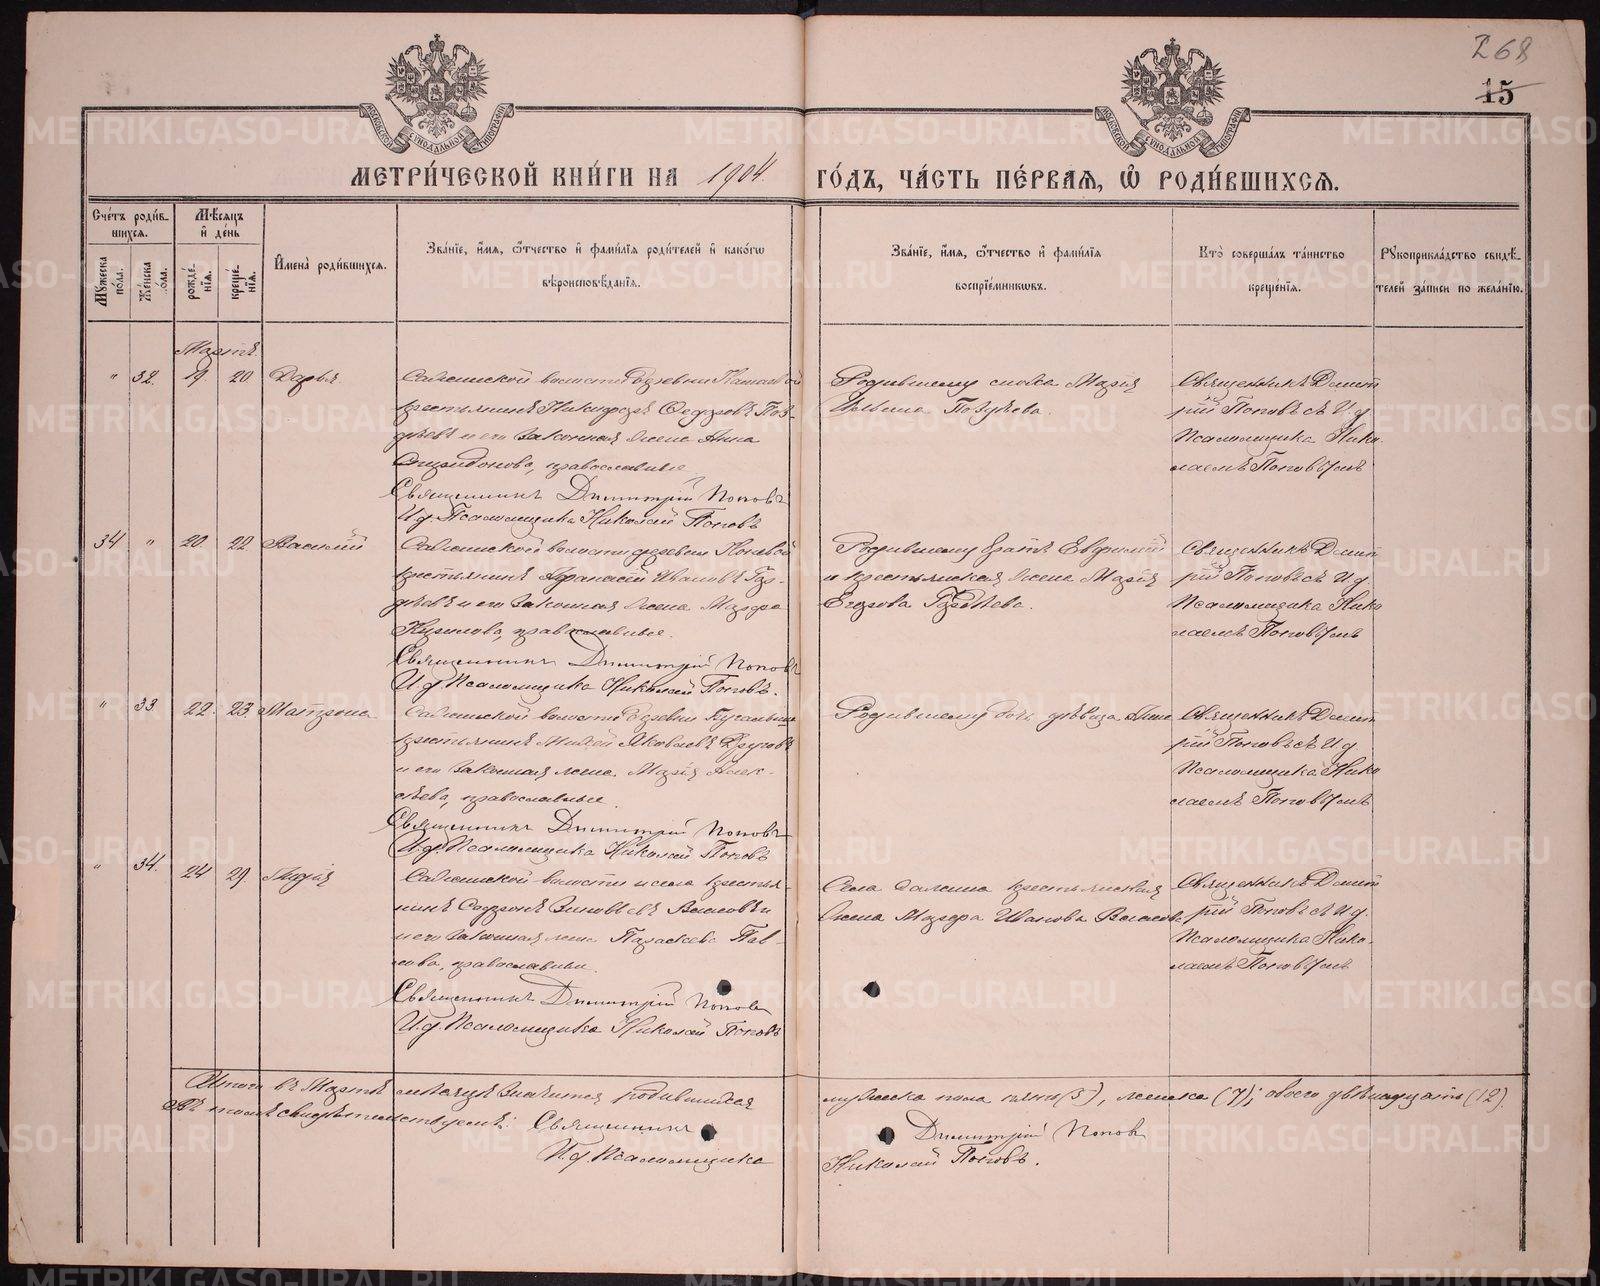 268
15
МОСКОВСКОЙ СѴНОДАЛЬНОЙ ТИПОГРАФІИ
МОСКОВСКОЙ СѴНОДАЛЬНОЙ ТИПОГРАФІИ
МЕТРИ́ЧЕСКОЙ КНИ́ГИ НА 1904. ГО́ДЪ, ЧА́СТЬ ПЕ́РВАѦ, Ѽ РОДИ́ВШИХСѦ.
Сче́тъ роди́в-
шихсѧ.
Мꙋжеска по́ла.
Же́нска по́ла.
Мѣ́сѧцъ и҆ де́нь
рожде́-нїѧ.
креще́-нїѧ.
И҆мена̀ роди́вшихсѧ.
Зва́нїе, и҆́мѧ, ѻ҆́тчество и҆ фами́лїѧ роди́телей и҆ како́гѡ
вѣроисповѣ́данїѧ.
Зва́нїе, и҆́мѧ, ѻ҆́тчество и҆ фами́лїѧ
воспрїе́мникѡвъ.
Кто̀ соверша́лъ та́инство
креще́нїѧ.
Рꙋкоприкла́дство свидѣ́-
телей за́писи по жела́нїю.
Мартъ.
" 32. 19. 20. Дарья
волости деревни
крестьянинъ Никифоръ Ѳедоровъ Поз-
дѣевъ и его законная жена Анна
Спиридонова, православные.
Священникъ Димитрій Поповъ
И. д. Псаломщика Николай Поповъ
Родившему сноха Марія
Ильина Поздѣева.
Священникъ Димит
рій Поповъ съ И. д.
Псаломщика Нико
лаемъ Поповымъ
34 " 20. 22 Василій
волости деревни
крестьянинъ Аѳанасій Ивановъ
и его законная жена Марѳа
православные.
Священникъ Димитрій Поповъ
И. д. Псаломщика Николай Поповъ.
Родившему братъ Евфимій
и крестьянская жена Марія
Егорова
Священникъ Димит
рій Поповъ съ И. д.
Псаломщика Нико
лаемъ Поповымъ
" 33. 22. 23. Матрона
волости деревни
крестьянинъ Яковлевъ
и его законная жена Марія Алек-
сѣева, православные.
Священникъ Димитрій Поповъ
И. д. Псаломщика Николай Поповъ
Родившему дочь дѣвица Анна
Священникъ Димит
рій Поповъ съ И. д.
Псаломщика Нико
лаемъ Поповымъ
" 34. 24 29. Лидія
волости и села крестья-
нинъ Софронъ Зиновьевъ Власовъ и
и его законная жена Параскева Пав-
лова, православные.
Священникъ Димитрій Поповъ
И. д. Псаломщика Николай Поповъ
Села крестьянская
жена Марѳа Иванова Власова
Священникъ Димит
рій Поповъ съ И. д.
Псаломщика Нико-
лаемъ Поповымъ
Итого въ Мартѣ мѣсяцѣ значится родившихся мужеска пола пять (5), женска (7); обоего двѣнадцать (12).
Въ томъ свидѣтельствуемъ: Священникъ Димитрій Поповъ
И. д. Псаломщика Николай Поповъ.
METRIKI.GASO-URAL.RU